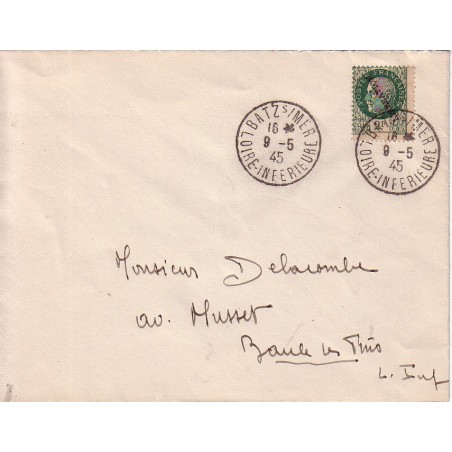 BATZ S/MER
16 *
9 -5
45
LOIRE-INFERIEURE
BATZ S/MER
16 *
9 -5
45
LOIRE-INFERIEURE
Monsieur Delacombe
av. Musset
Baule les Pins
L. Inf